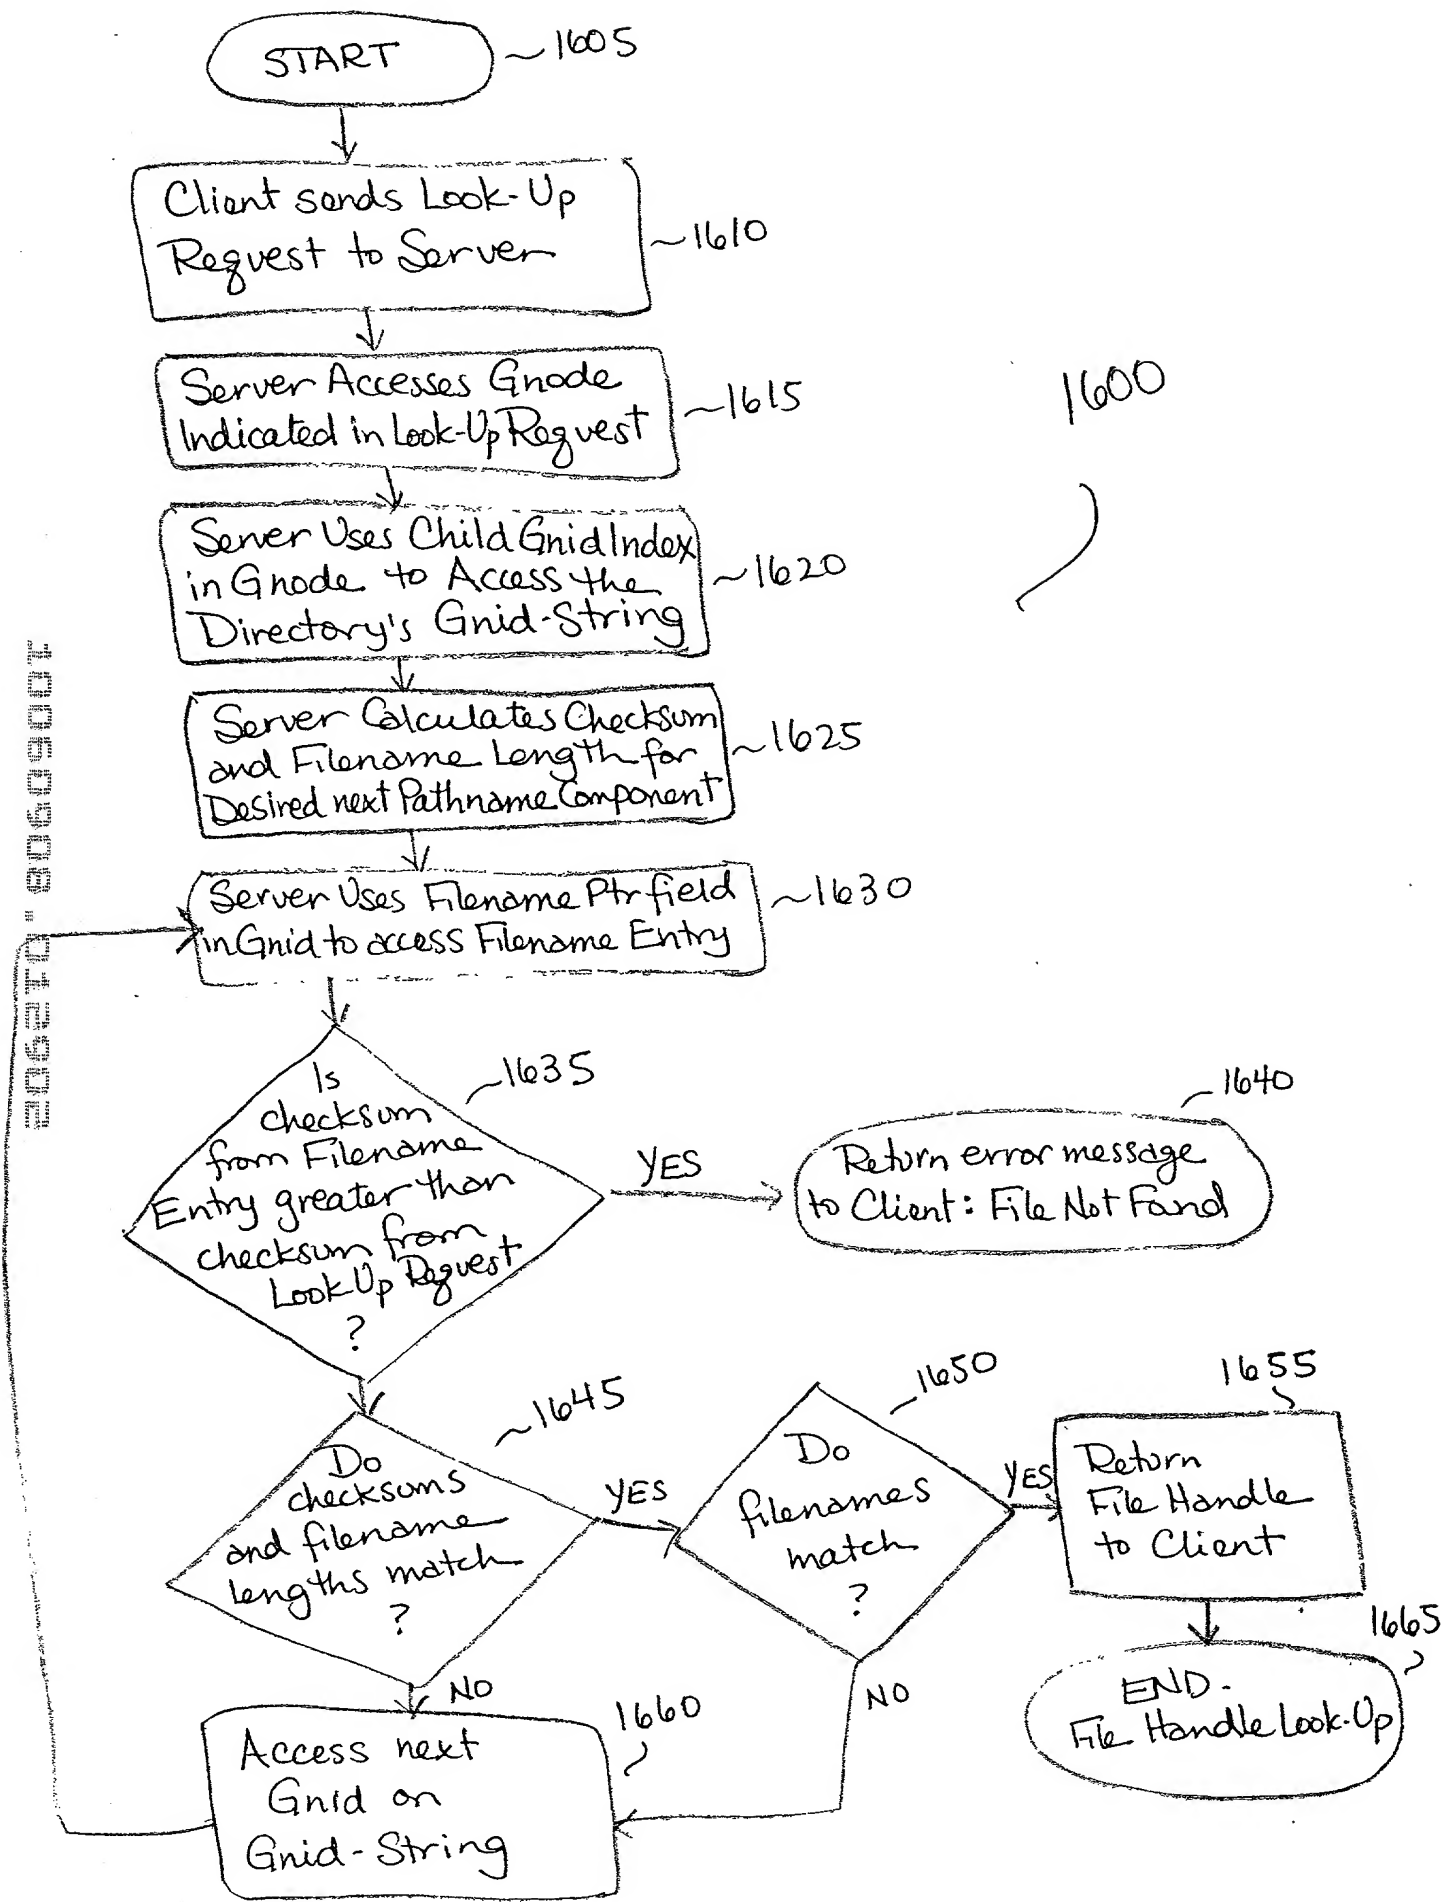 START
1605
Client sends Look-Up
Request to Server
1610
Server Accesses Gnode
Indicated in Look-Up Request
1615
1600
Server Uses Child Gnid Index
in Gnode to Access the
Directory's Gnid-String
1620
Server Calculates Checksum
and Filename Length for
Desired next Pathname Component
1625
Server Uses Filename Ptr field
in Gnid to access Filename Entry
1630
10060908.012902
Is
checksum
from Filename
Entry greater than
checksum from
Look-Up Request
?
1635
YES
1640
Return error message
to Client: File Not Found
Do
checksums
and filename
lengths match
?
1645
YES
NO
1650
Do
filenames
match
?
YES
NO
1655
Return
File Handle
to Client
1665
END-
File Handle Look-Up
1660
Access next
Gnid on
Gnid-String